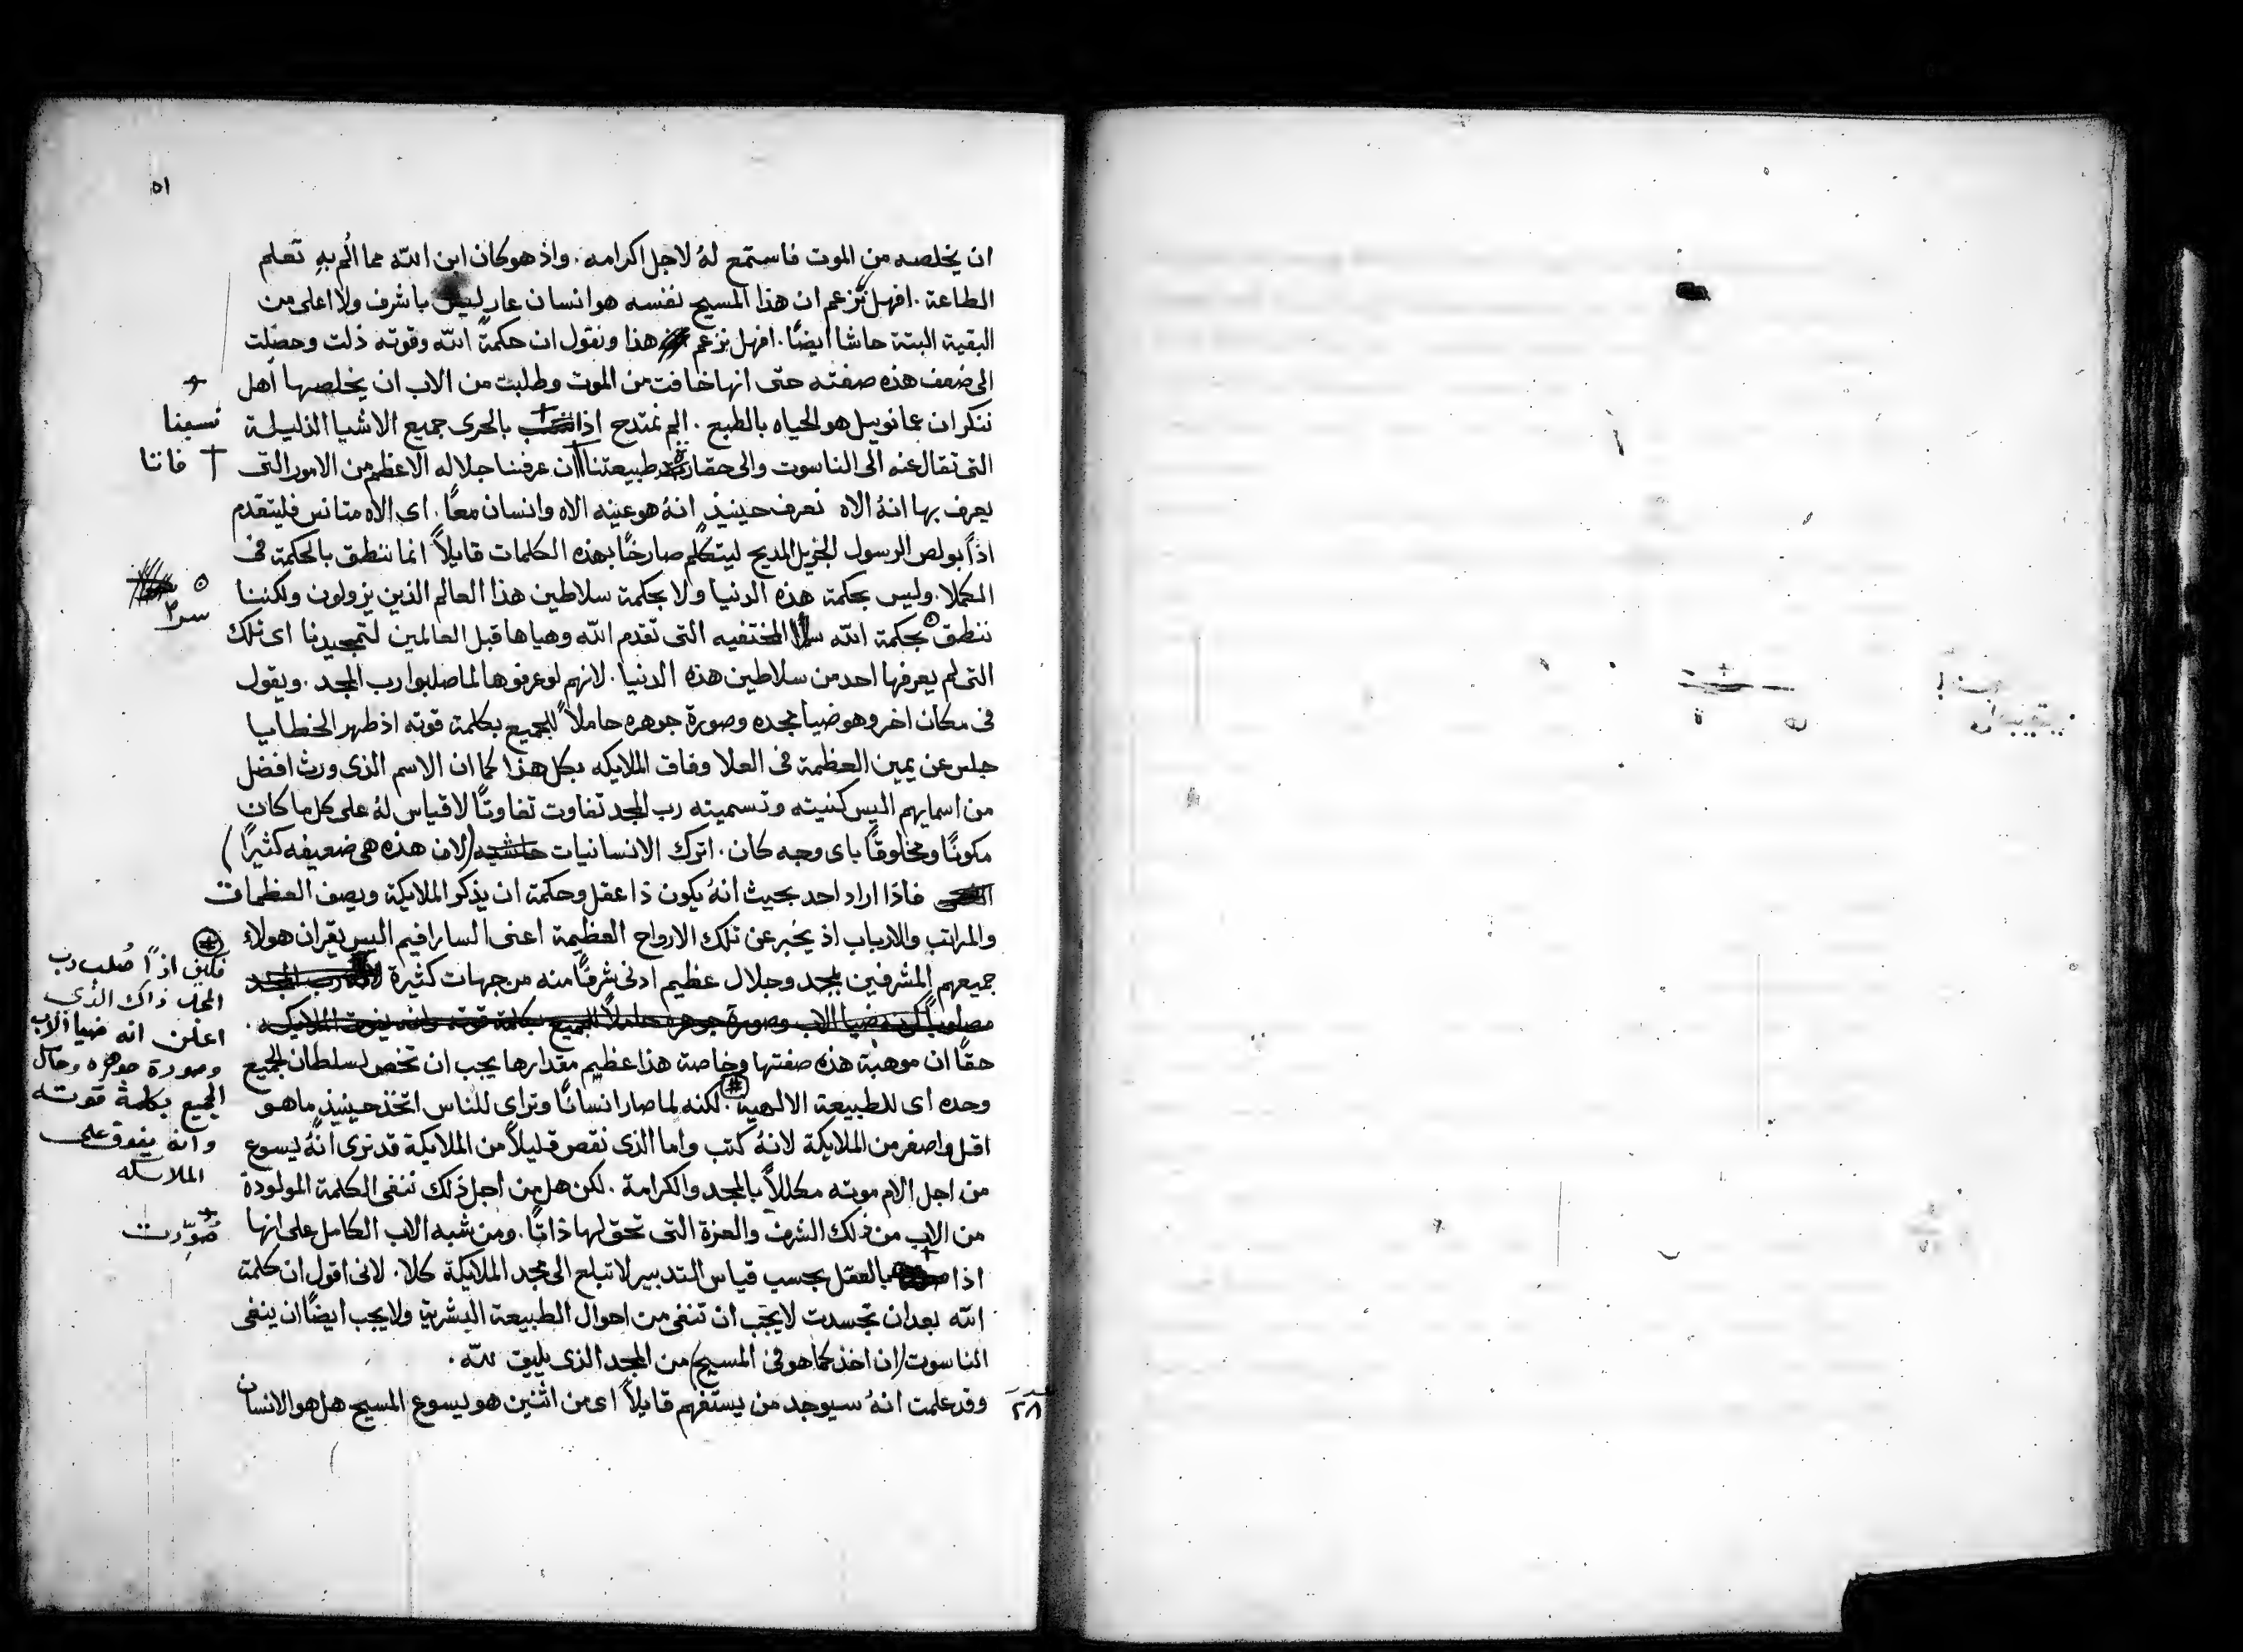 ٥١
ان يخلصه من الموت فاستمع لهُ لاجل اكرامه . واذ هو كان ابن الله مما اُلم بهِ تعلم
الطاعة . افهل نزعم ان هذا المسيح نفسه هو انسان عار ليس باشرف ولا اعلى من
البقية البتة حاشا ايضًا . افهل نزعم هذا ونقول ان حكمة الله وقوته ذلت وحضلت
الى ضعف هذه صفته حتى انها خافت من الموت وطلبت من الاب ان يخلصها اهل
ننكر ان عمانوييل هو الحياه بالطبع . الم نمتدح اذا بالحرى جميع الاشيا الذليلة
نسبنا
التى تقال عنه الى الناسوت والى حقارة طبيعتنا ان عرفنا جلاله الاعظم من الامور التى
فاننا
يعرف بها انهُ الاه نعرف حينيذ انهُ هو عينه الاه وانسان معًا . اى الاه متانس فليتقدم
اذًا بولص الرسول الجزيل المديح ليتكلم صارخًا بهذه الكلمات قايلاً انما ننطق بالحكمة فى
الكملا . وليس بحكمة هذه الدنيا ولا بحكمة سلاطين هذا العالم الذين يزولون ولكننا
سرًا
ننطق بحكمة الله المختفيه التى تقدم الله وهياها قبل العالمين لتمجيدنا اى تلك
التى لم يعرفها احد من سلاطين هذه الدنيا . لانهم لو عرفوها لما صلبوا رب المجد . ويقول
فى مكان اخر وهو ضيا مجده وصورة جوهره حاملاً للجميع بكلمة قوته اذ طهر الخطايا
جلس عن يمين العظمة فى العلا وفاق الملايكه بكل هذا كما ان الاسم الذى ورث افضل
من اسمايهم اليس كنيته وتسميته رب المجد تفاوت تفاوتًا لا قياس لهُ على كل ما كان
مكونًا ومخلوقًا باى وجه كان . اترك الانسانيات حاشيه (لان هذه هى ضعيفه كثيرًا)
فاذا اراد احد بحيث انهُ يكون ذا عقل وحكمة ان يذكر الملايكة ويصف العظمات
والمراتب والارباب اذ يخبر عن تلك الارواح العظيمة اعنى السارافيم اليس يقر ان هولاء
جميعهم المشرفين بمجد وجلال عظيم ادنى شرفًا منه من جهات كثيرة رب المجد
ضيا الاب وصورة جوهره حاملاً للجميع بكلمة قوته وانه يفوق الملايكه .
حقًا ان موهبة هذه صفتها وخاصة هذا عظيم مقدارها يجب ان تخص لسلطان الجميع
وحده اى للطبيعة الالهية . لكنه لما صار انسانًا وتراى للناس اتخذ حينيذ ما هو
اقل واصغر من الملايكة لانهُ كتب واما الذى نقص قليلاً من الملايكة قد نرى انهُ يسوع
من اجل الام موته مكللاً بالمجد والكرامة . لكن هل من اجل ذلك ننفى الكلمة المولودة
من الاب من ذلك الشرف والعزة التى تحق لها ذاتًا . ومن شبه الاب الكامل على انها
اذا بالعقل بحسب قياس التدبير لا تبلع الى مجد الملايكة كلا . لانى اقول ان كلمة
الله بعد ان تجسدت لا يجب ان تنفى من احوال الطبيعة البشرية ولا يجب ايضًا ان ينفى
الناسوت (ان اخذ كما هو فى المسيح) من المجد الذى يليق لله .
وقد علمت انهُ سيوجد من يستفهم قايلاً اى من اثنين هو يسوع المسيح هل هو الانسان
٢٨
فكيف اذًا صُلب رب
المجد ذاك الذى
اعلن انه ضيا الاب
وصورة جوهره وحامل
الجميع بكلمة قوته
وانه يفوق على
الملايكه
صُوّرت